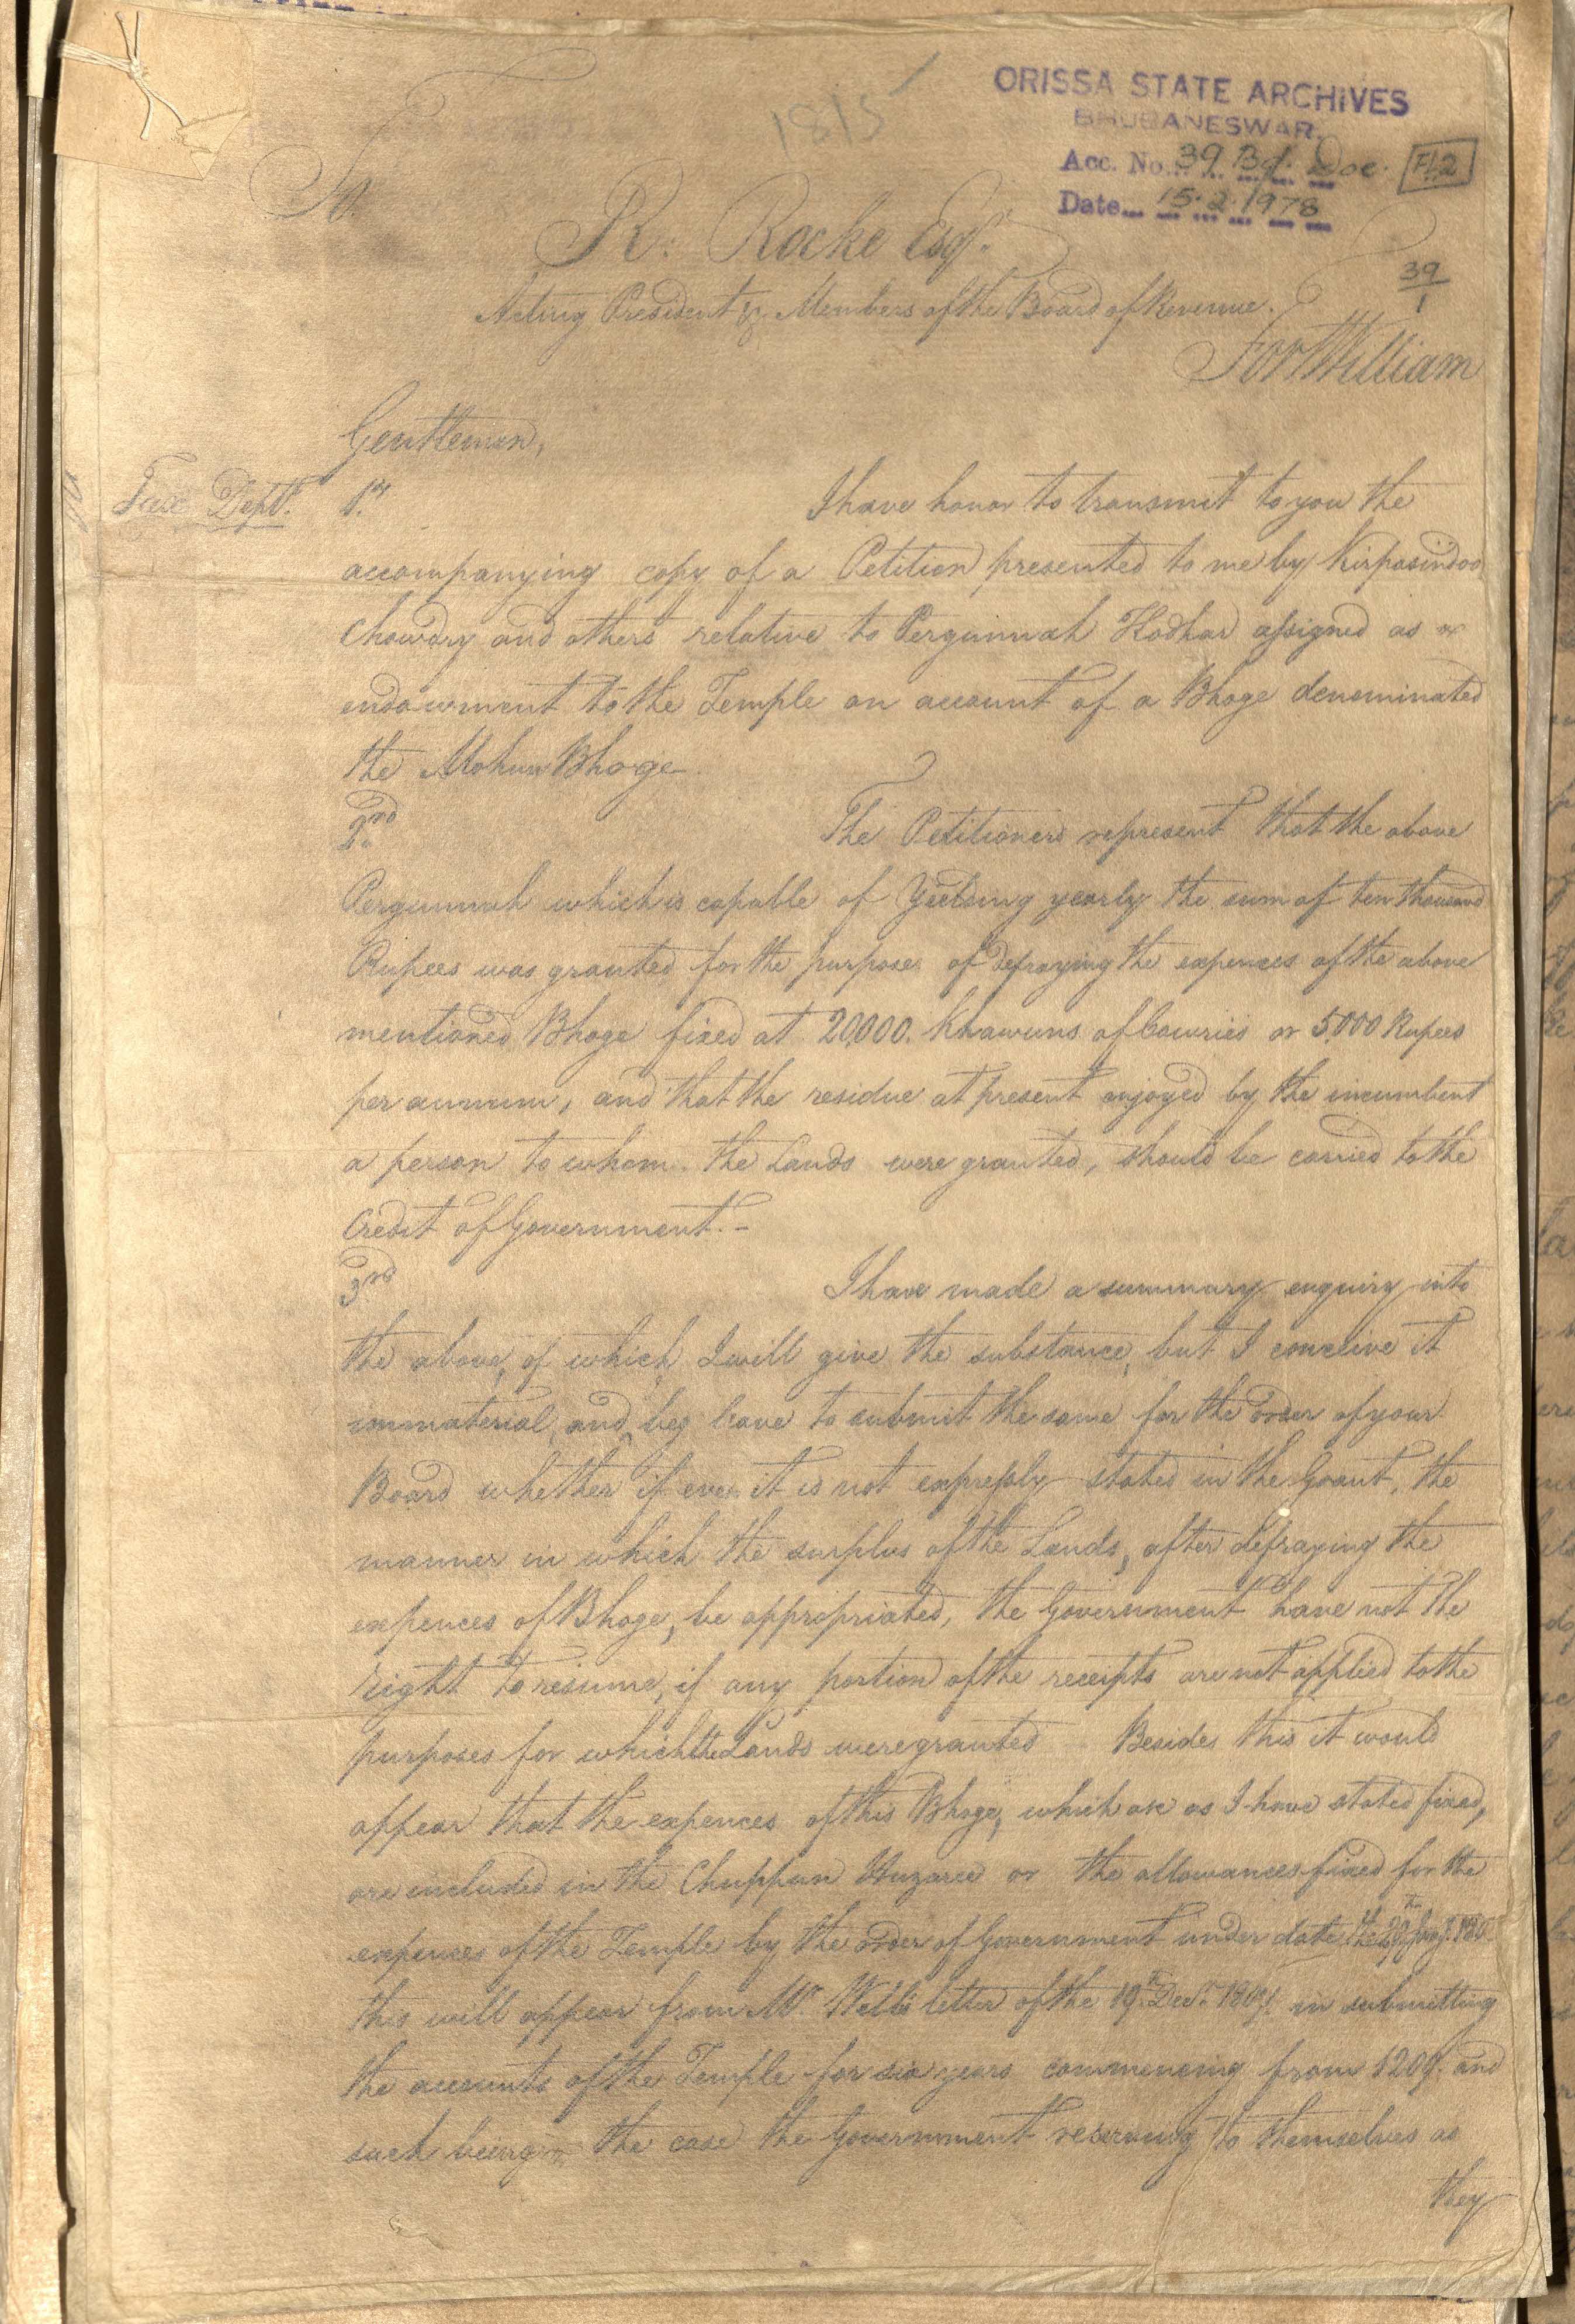 1815
ORISSA STATE ARCHIVES
BHUBANESWAR.
Acc. No. 39 Bd. Doc. F1.2
Date 15.2.1978
To.
R: Rocke Esqr.
39
1
Acting President & Members of the Board of Revenue.
Fort William
Gentlemen,
Taxe Deptt. 1st I have honor to transmit to you the
accompanying copy of a Petition presented to me by Kirpasindoo
Chowdry and others relative to Pergunnah Kodhar assigned as
endowment to the Temple on account of a Bhoge denominated
the Mohun Bhoge
2nd The Petitioners represent that the above
Pergunnah which is capable of Yeilding yearly the sum of ten thousand
Rupees was granted for the purposes of defraying the expences of the above
mentioned Bhoge fixed at 20,000. Khawuns of Cowries or 5,000 Rupees
per annum, and that the residue at present enjoyed by the incumbent
a person to whom the Lands were granted, should be carried to the
Credit of Government. -
3rd I have made a summary enquiry into
the above, of which I will give the substance, but I conceive it
immaterial, and beg leave to submit the same for the order of your
Board whether if even it is not expressly stated in the Grant, the
manner in which the surplus of the Lands, after defraying the
expences of Bhoge, be appropriated, the Government have not the
right to resume, if any portion of the receipts are not applied to the
purposes for which the Lands were granted Besides this it would
appear that the expences of this Bhoge, which are as I have stated fixed,
are included in the Chuppun Huzaree or the allowances fixed for the
expences of the Temple by the order of Government under date the
this will appear from Mr. Webb's letter of the 19th Decr. in submitting
the accounts of the Temple for six years commencing from and
such being the case the Government reserving to themselves as
they